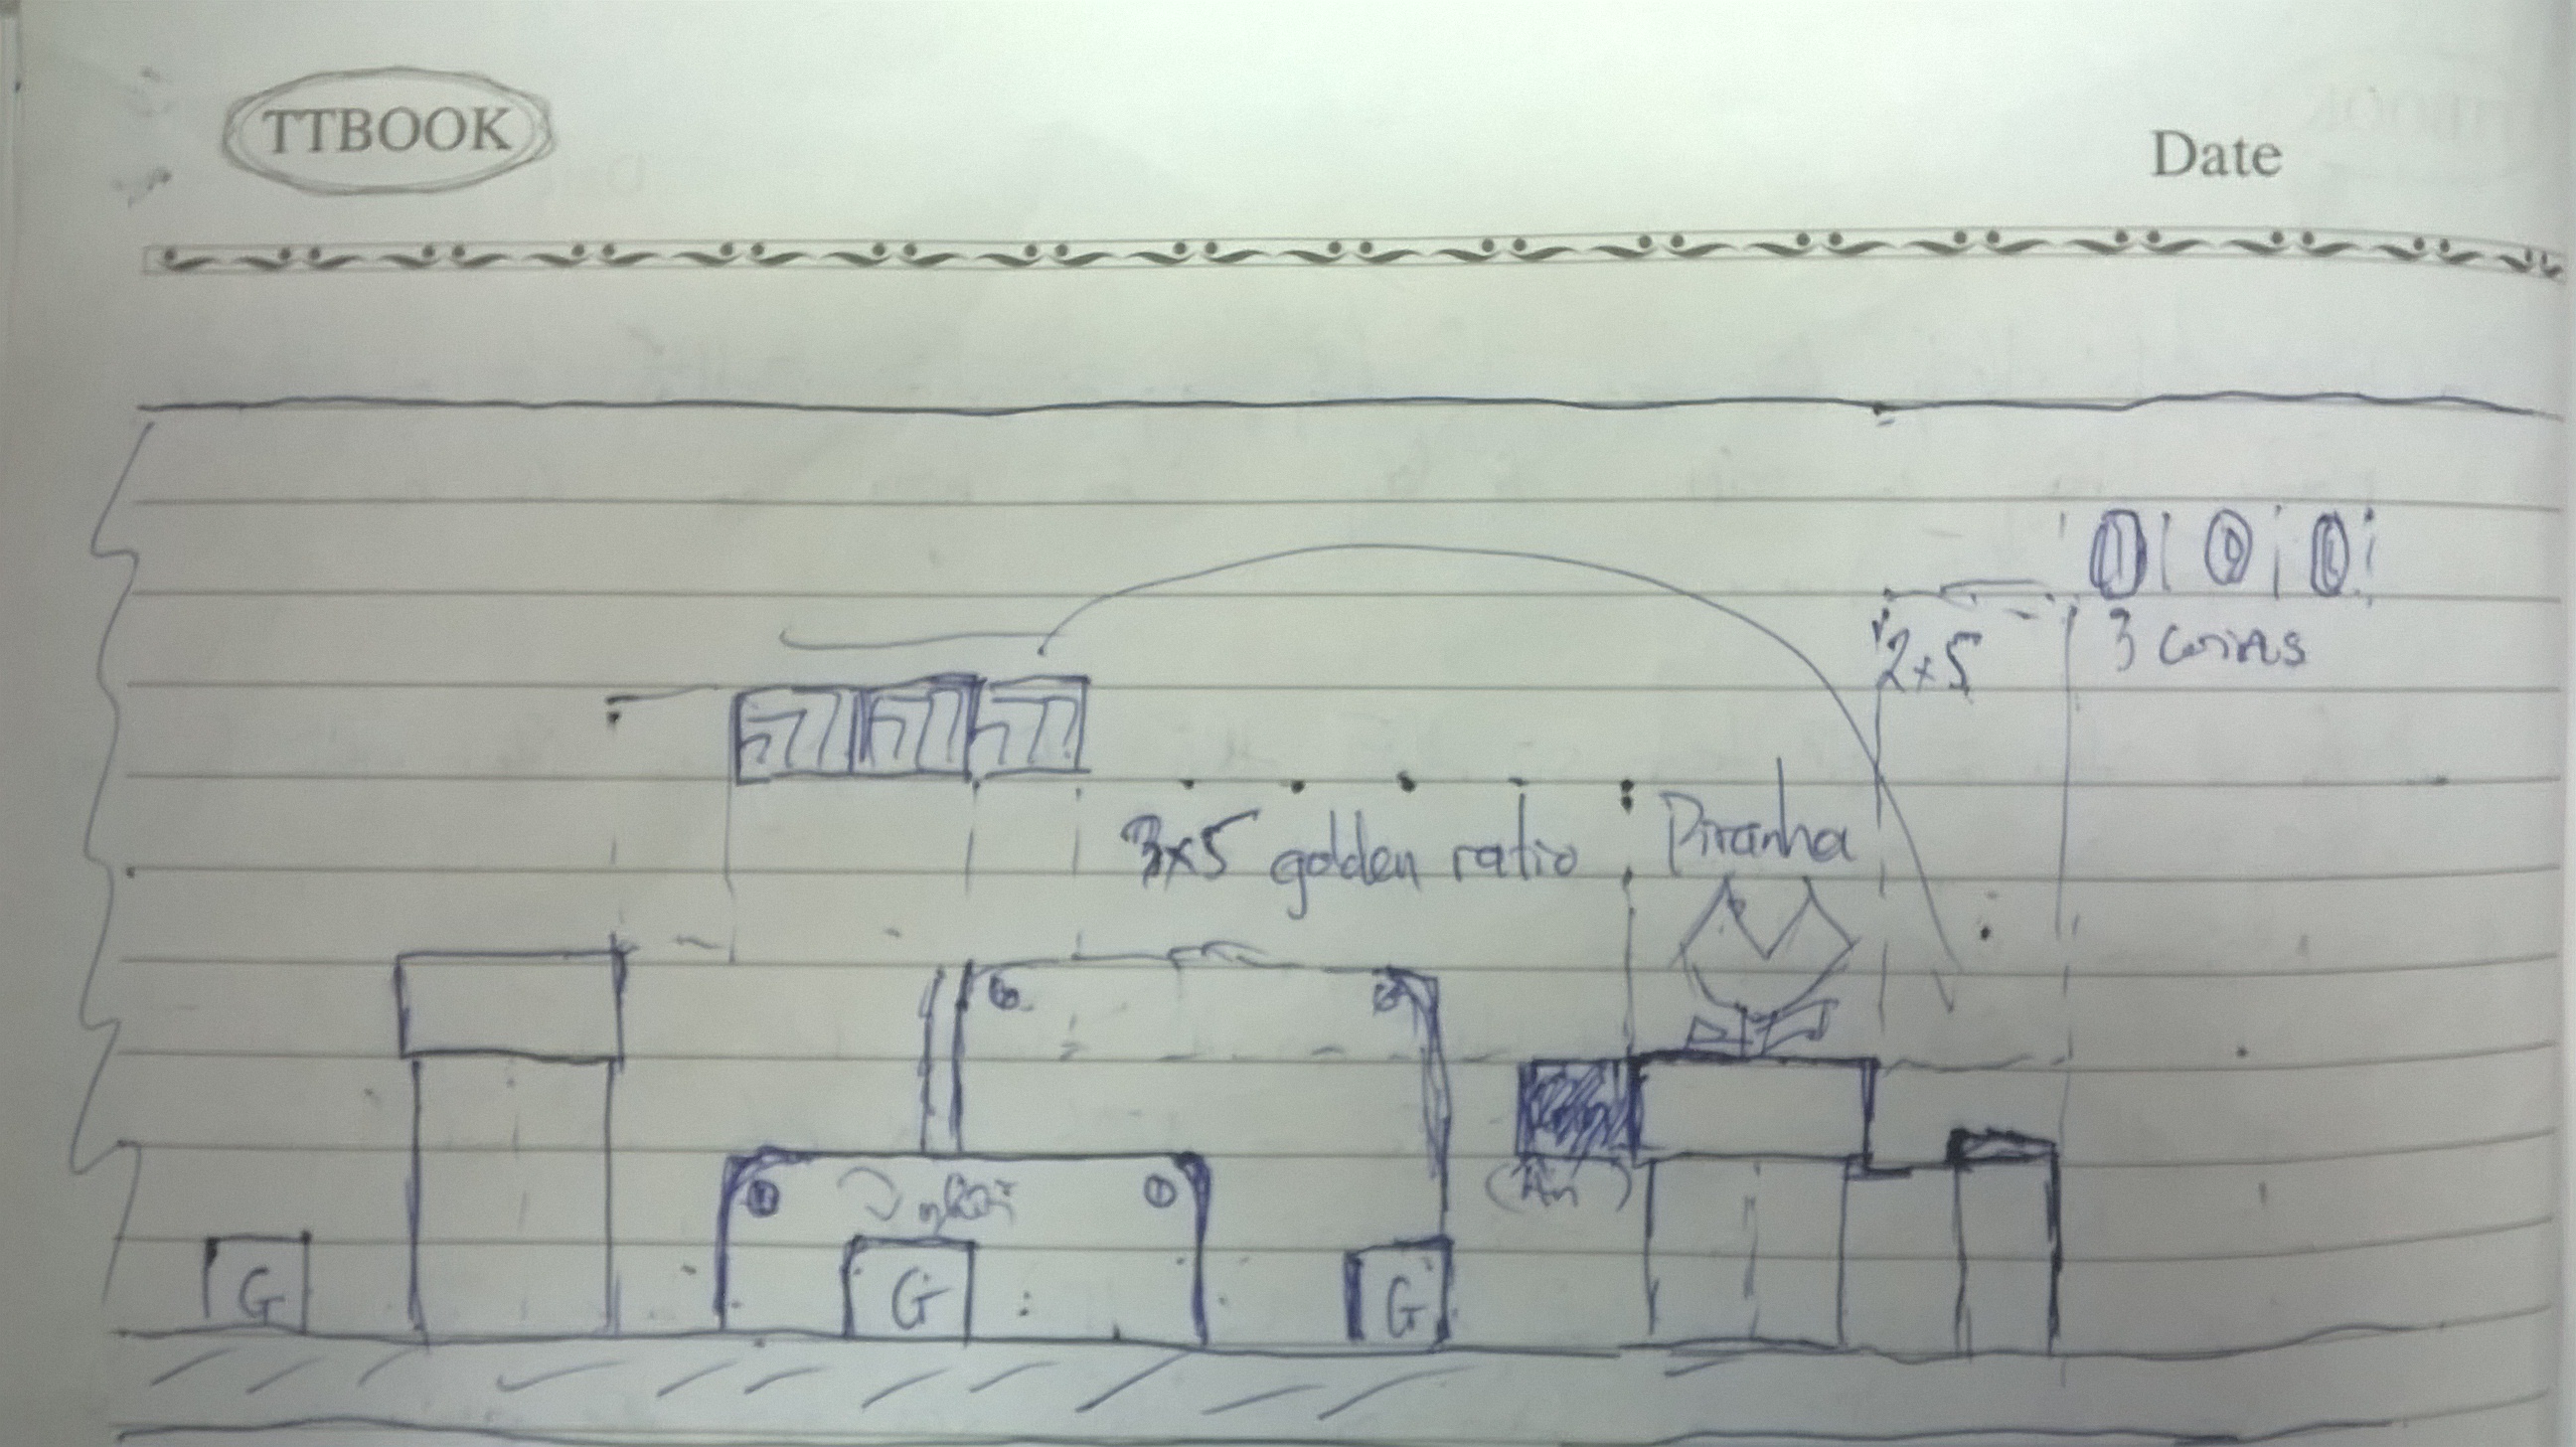 TTBOOK
Date
3 coins
2x5
3x5 golden ratio
Piranha
(Ẩn)
G
G
G